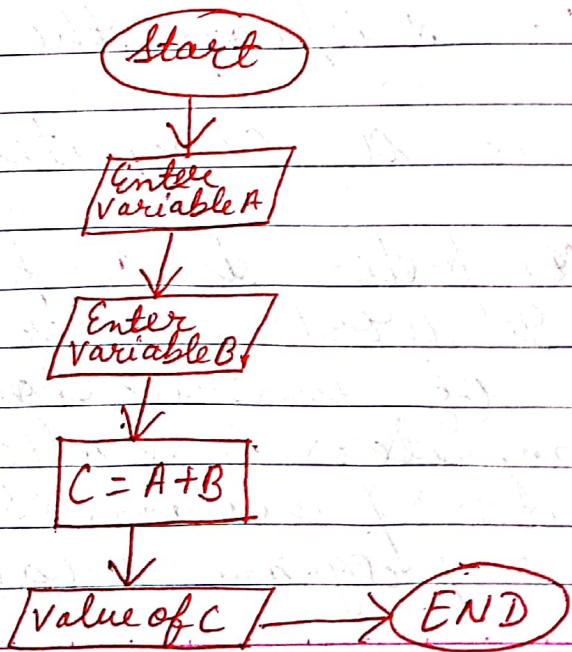 Start
Enter
Variable A
Enter
Variable B
C = A + B
Value of C
END